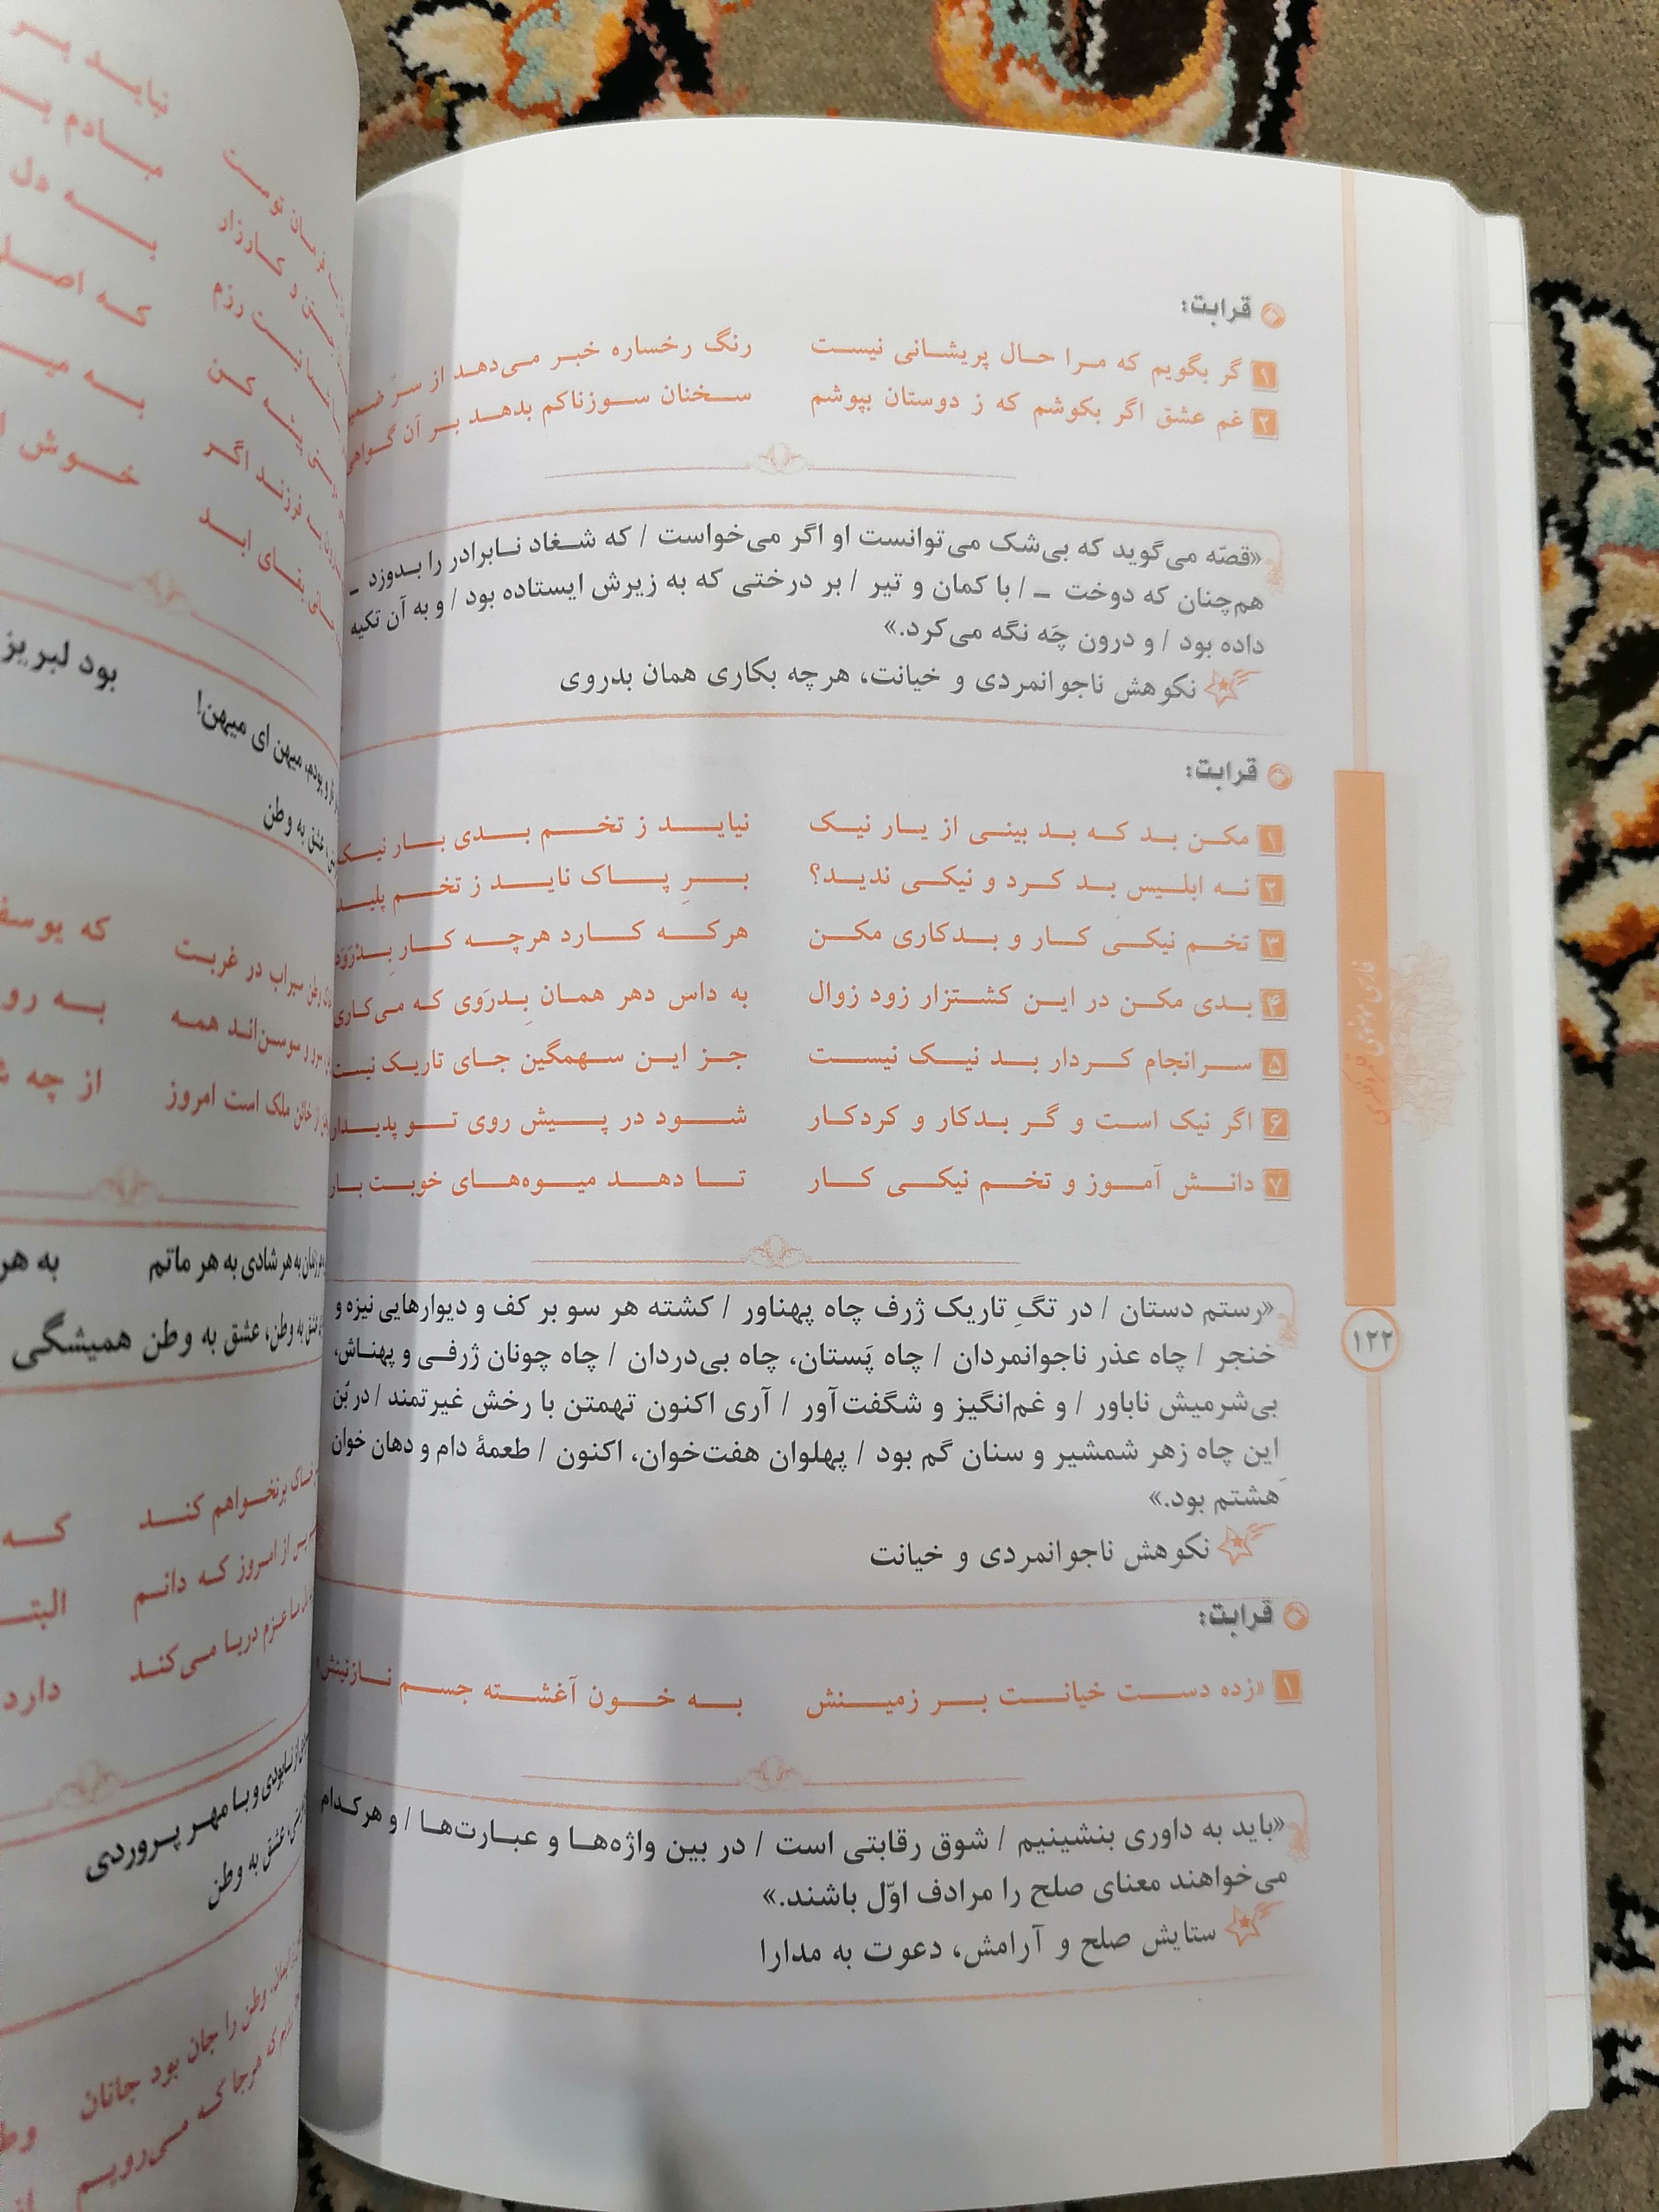 قرابت:
۱ گر بگویم که مرا حال پریشانی نیست رنگ رخساره خبر می‌دهد از سرّ ضمیر
۲ غم عشق اگر بکوشم که ز دوستان بپوشم سخنان سوزناکم بدهد بر آن گواهی
«قصّه می‌گوید که بی‌شک می‌توانست او اگر می‌خواست / که شغاد نابرادر را بدوزد ـ
هم‌چنان که دوخت ـ / با کمان و تیر / بر درختی که به زیرش ایستاده بود / و به آن تکیه
داده بود / و درون چَه نگه می‌کرد.»
نکوهش ناجوانمردی و خیانت، هرچه بکاری همان بدروی
قرابت:
۱ مکن بد که بد بینی از یار نیک نیاید ز تخم بدی بار نیک
۲ نه ابلیس بد کرد و نیکی ندید؟ برِ پاک ناید ز تخم پلید
۳ تخم نیکی کار و بدکاری مکن هرکه کارد هرچه کار بِدْرَوَد
۴ بدی مکن در این کشتزار زود زوال به داس دهر همان بِدرَوی که می‌کاری
۵ سرانجام کردار بد نیک نیست جز این سهمگین جای تاریک نیست
۶ اگر نیک است و گر بدکار و کردکار شود در پیش روی تو پدیدار
۷ دانش آموز و تخم نیکی کار تا دهد میوه‌های خوبت بار
«رستم دستان / در تگِ تاریک ژرف چاه پهناور / کشته هر سو بر کف و دیوارهایی نیزه و
خنجر / چاه عذر ناجوانمردان / چاه پَستان، چاه بی‌دردان / چاه چونان ژرفی و پهناش،
بی‌شرمیش ناباور / و غم‌انگیز و شگفت‌آور / آری اکنون تهمتن با رخش غیرتمند / در بُن
این چاه زهر شمشیر و سنان گم بود / پهلوان هفت‌خوان، اکنون / طعمهٔ دام و دهان خوان
هشتم بود.»
نکوهش ناجوانمردی و خیانت
قرابت:
۱ «زده دست خیانت بر زمینش به خون آغشته جسم نازنینش»
«باید به داوری بنشینیم / شوق رقابتی است / در بین واژه‌ها و عبارت‌ها / و هرکدام
می‌خواهند معنای صلح را مرادف اوّل باشند.»
ستایش صلح و آرامش، دعوت به مدارا
۱۲۲
نیاید
به دل
که اصل
خوش
بود لبریز
میهن ای میهن!
عشق به وطن
که یوسف
سیراب در غربت
سوسن‌اند همه
از چه
ملک است امروز
به هر شادی به هر ماتم به هر
عشق به وطن، عشق به وطن همیشگی
برنخواهم کند که
پس از امروز که دانم
عزم دریا می‌کند دارد
نابودی و با مهر پروردی
عشق به وطن
وطن را جان بود جانان
که هرجا که می‌رویم